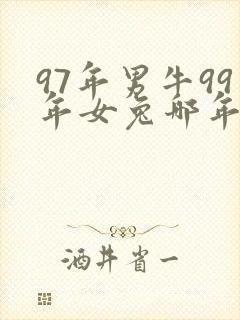 97年男牛99
年女兔哪年
酒井省一